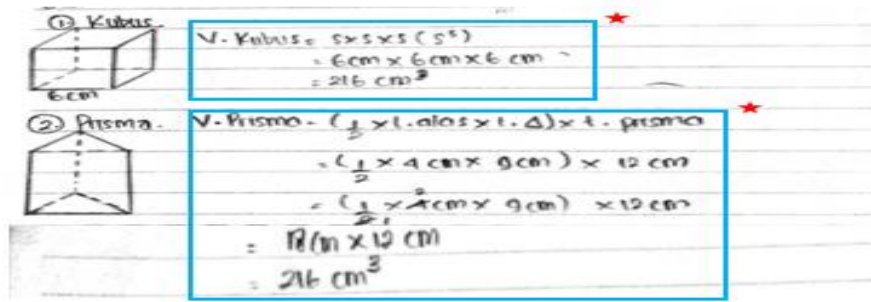 ① Kubus.
V. Kubus = s x s x s (s³)
= 6cm x 6cm x 6 cm
= 216 cm³
6cm
② Prisma.
V. Prisma = (1/2 x l. alas x t. Δ) x t. prisma
= (1/2 x 4 cm x 9cm) x 12 cm
= (1/2 1 x 4 2 cm x 9cm) x 12 cm
= 18 cm x 12 cm
= 216 cm³